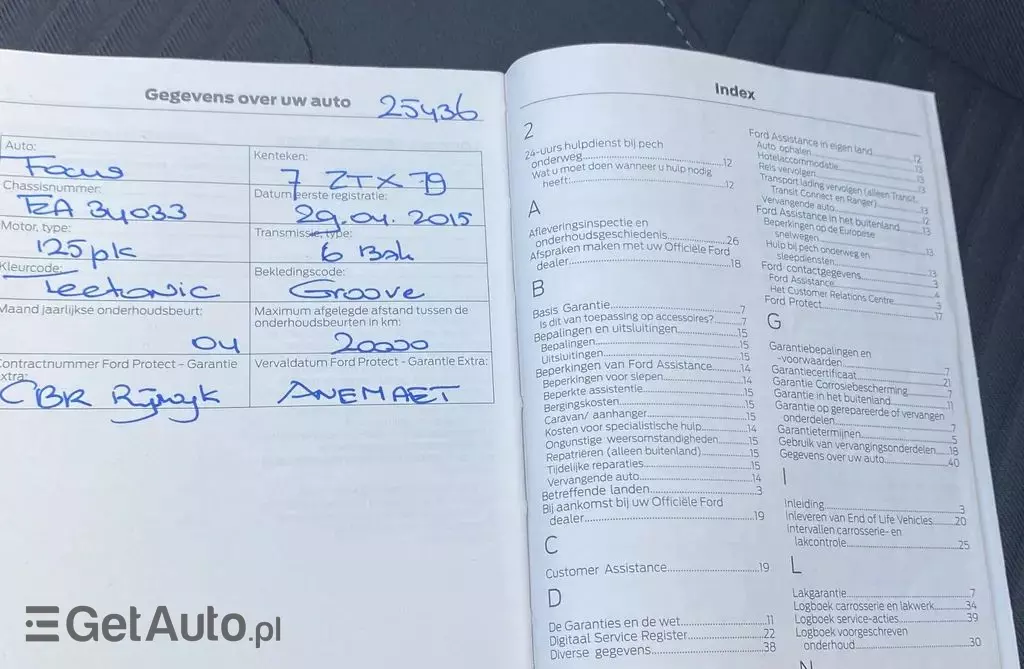 Gegevens over uw auto 25436
Auto:
Focus
Kenteken:
7 ZTX 79
Chassisnummer:
EA 34033
Datum eerste registratie:
29.04.2015
Motor, type:
125pk
Transmissie, type:
6 Bak
Kleurcode:
Tectonic
Bekledingscode:
Groove
Maand jaarlijkse onderhoudsbeurt:
04
Maximum afgelegde afstand tussen de
onderhoudsbeurten in km:
20000
Contractnummer Ford Protect - Garantie
xtra:
CBR Rijswijk
Vervaldatum Ford Protect - Garantie Extra:
ANEMAET
Index
2
24-uurs hulpdienst bij pech
onderweg.....12
Wat u moet doen wanneer u hulp nodig
heeft:.....12
A
Afleveringsinspectie en
onderhoudsgeschiedenis.....26
Afspraken maken met uw Officiële Ford
dealer.....18
B
Basis Garantie.....7
Is dit van toepassing op accessoires?.....7
Bepalingen en uitsluitingen.....15
Bepalingen.....15
Uitsluitingen.....15
Beperkingen van Ford Assistance.....14
Beperkingen voor slepen.....14
Beperkte assistentie.....15
Bergingskosten.....15
Caravan/ aanhanger.....15
Kosten voor specialistische hulp.....14
Ongunstige weersomstandigheden.....15
Repatriëren (alleen buitenland).....15
Tijdelijke reparaties.....15
Vervangende auto.....14
Betreffende landen.....3
Bij aankomst bij uw Officiële Ford
dealer.....19
C
Customer Assistance.....19
D
De Garanties en de wet.....11
Digitaal Service Register.....22
Diverse gegevens.....38
Ford Assistance in eigen land.....12
Auto ophalen.....13
Hotelaccommodatie.....13
Reis vervolgen.....13
Transport lading vervolgen (alleen Transit,
Transit Connect en Ranger).....13
Vervangende auto.....12
Ford Assistance in het buitenland.....13
Beperkingen op de Europese
snelwegen.....13
Hulp bij pech onderweg en
sleepdiensten.....13
Ford contactgegevens.....3
Ford Assistance.....4
Het Customer Relations Centre.....3
Ford Protect.....17
G
Garantiebepalingen en
-voorwaarden.....7
Garantiecertificaat.....21
Garantie Corrosiebescherming.....7
Garantie in het buitenland.....11
Garantie op gerepareerde of vervangen
onderdelen.....7
Garantietermijnen.....5
Gebruik van vervangingsonderdelen.....18
Gegevens over uw auto.....40
I
Inleiding.....3
Inleveren van End of Life Vehicles.....20
Intervallen carrosserie- en
lakcontrole.....25
L
Lakgarantie.....7
Logboek carrosserie en lakwerk.....34
Logboek service-acties.....39
Logboek voorgeschreven
onderhoud.....30
N
GetAuto.pl